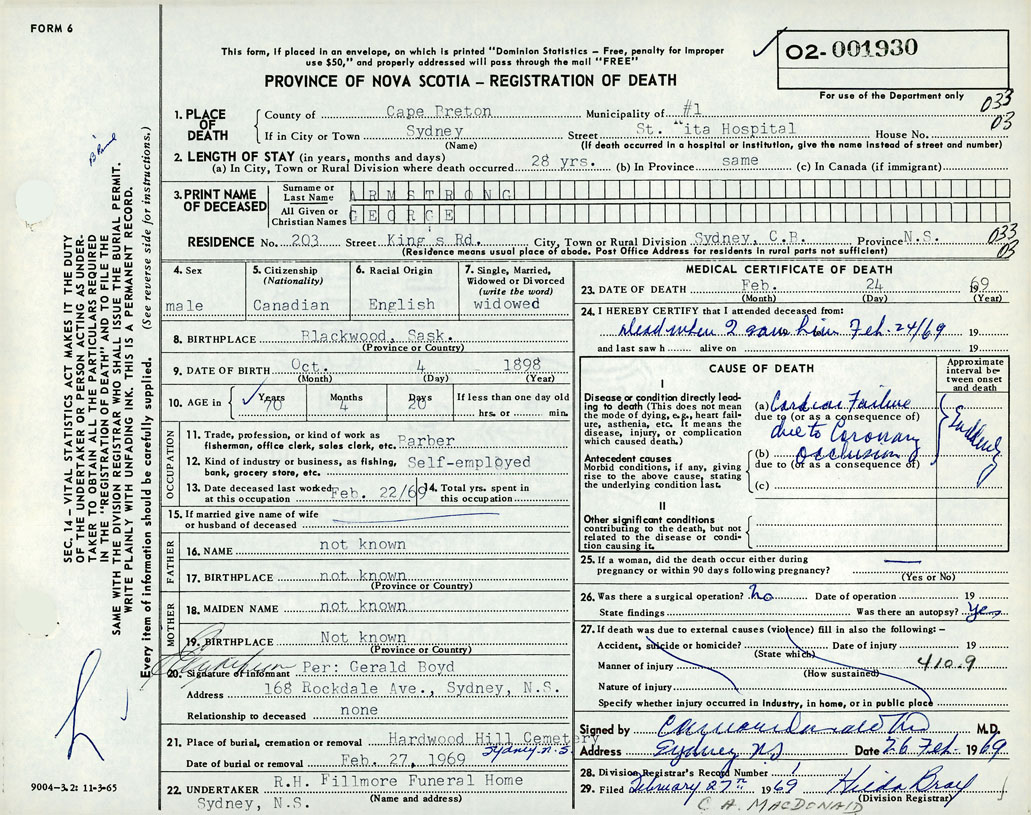 FORM 6
This form, if placed in an envelope, on which is printed "Dominion Statistics – Free, penalty for improper
use $50," and properly addressed will pass through the mail "FREE"
02-001930
For use of the Department only
PROVINCE OF NOVA SCOTIA – REGISTRATION OF DEATH
033
03
1. PLACE OF DEATH
County of Cape Breton Municipality of #1
If in City or Town Sydney Street St. Rita Hospital House No.
(Name) (If death occurred in a hospital or institution, give the name instead of street and number)
2. LENGTH OF STAY (in years, months and days)
(a) In City, Town or Rural Division where death occurred 28 yrs. (b) In Province same (c) In Canada (if immigrant)
3. PRINT NAME OF DECEASED
Surname or Last Name ARMSTRONG
All Given or Christian Names GEORGE
RESIDENCE No. 203 Street King's Rd. City, Town or Rural Division Sydney, C.B. Province N.S.
(Residence means usual place of abode. Post Office Address for residents in rural parts not sufficient)
033
03
4. Sex
male
5. Citizenship (Nationality)
Canadian
6. Racial Origin
English
7. Single, Married, Widowed or Divorced (write the word)
widowed
8. BIRTHPLACE Blackwood, Sask.
(Province or Country)
9. DATE OF BIRTH Oct. 4 1898
(Month) (Day) (Year)
10. AGE in Years Months Days If less than one day old
70 4 20 hrs. or min.
OCCUPATION
11. Trade, profession, or kind of work as
fisherman, office clerk, sales clerk, etc. Barber
12. Kind of industry or business, as fishing,
bank, grocery store, etc. Self-employed
13. Date deceased last worked at this occupation Feb. 22/69
14. Total yrs. spent in this occupation
15. If married give name of wife
or husband of deceased
FATHER
16. NAME not known
17. BIRTHPLACE not known
(Province or Country)
MOTHER
18. MAIDEN NAME not known
19. BIRTHPLACE Not known
(Province or Country)
20. Signature of informant Per: Gerald Boyd
Address 168 Rockdale Ave., Sydney, N.S.
Relationship to deceased none
21. Place of burial, cremation or removal Hardwood Hill Cemetery
Sydney N.S.
Date of burial or removal Feb. 27, 1969
22. UNDERTAKER R.H. Fillmore Funeral Home
Sydney, N.S. (Name and address)
MEDICAL CERTIFICATE OF DEATH
23. DATE OF DEATH Feb. 24 1969
(Month) (Day) (Year)
24. I HEREBY CERTIFY that I attended deceased from:
Dead when I saw him Feb. 24/69 19
and last saw h alive on 19
CAUSE OF DEATH
Approximate interval between onset and death
I
Disease or condition directly leading to death (This does not mean the mode of dying, e.g., heart failure, asthenia, etc. It means the disease, injury, or complication which caused death.)
(a) Cardiac Failure
due to (or as a consequence of)
due to Coronary
Suddenly
Antecedent causes
Morbid conditions, if any, giving rise to the above cause, stating the underlying condition last.
(b) Occlusion
due to (or as a consequence of)
(c)
II
Other significant conditions
contributing to the death, but not related to the disease or condition causing it.
25. If a woman, did the death occur either during
pregnancy or within 90 days following pregnancy?
(Yes or No)
26. Was there a surgical operation? no Date of operation 19
State findings Was there an autopsy? Yes
27. If death was due to external causes (violence) fill in also the following: –
Accident, suicide or homicide? Date of injury 19
(State which)
Manner of injury 410.9
(How sustained)
Nature of injury
Specify whether injury occurred in industry, in home, or in public place
Signed by M.D.
Address Sydney NS Date 26 Feb. 1969
28. Division Registrar's Record Number 1
29. Filed February 27th 1969 Hilda Bray
(Division Registrar)
C. A. MACDONALD
SEC. 14 – VITAL STATISTICS ACT MAKES IT THE DUTY
OF THE UNDERTAKER OR PERSON ACTING AS UNDER-
TAKER TO OBTAIN ALL THE PARTICULARS REQUIRED
IN THE "REGISTRATION OF DEATH" AND TO FILE THE
SAME WITH THE DIVISION REGISTRAR WHO SHALL ISSUE THE BURIAL PERMIT.
WRITE PLAINLY WITH UNFADING INK. THIS IS A PERMANENT RECORD.
Every item of information should be carefully supplied. (See reverse side for instructions.)
9004-3.2: 11-3-65